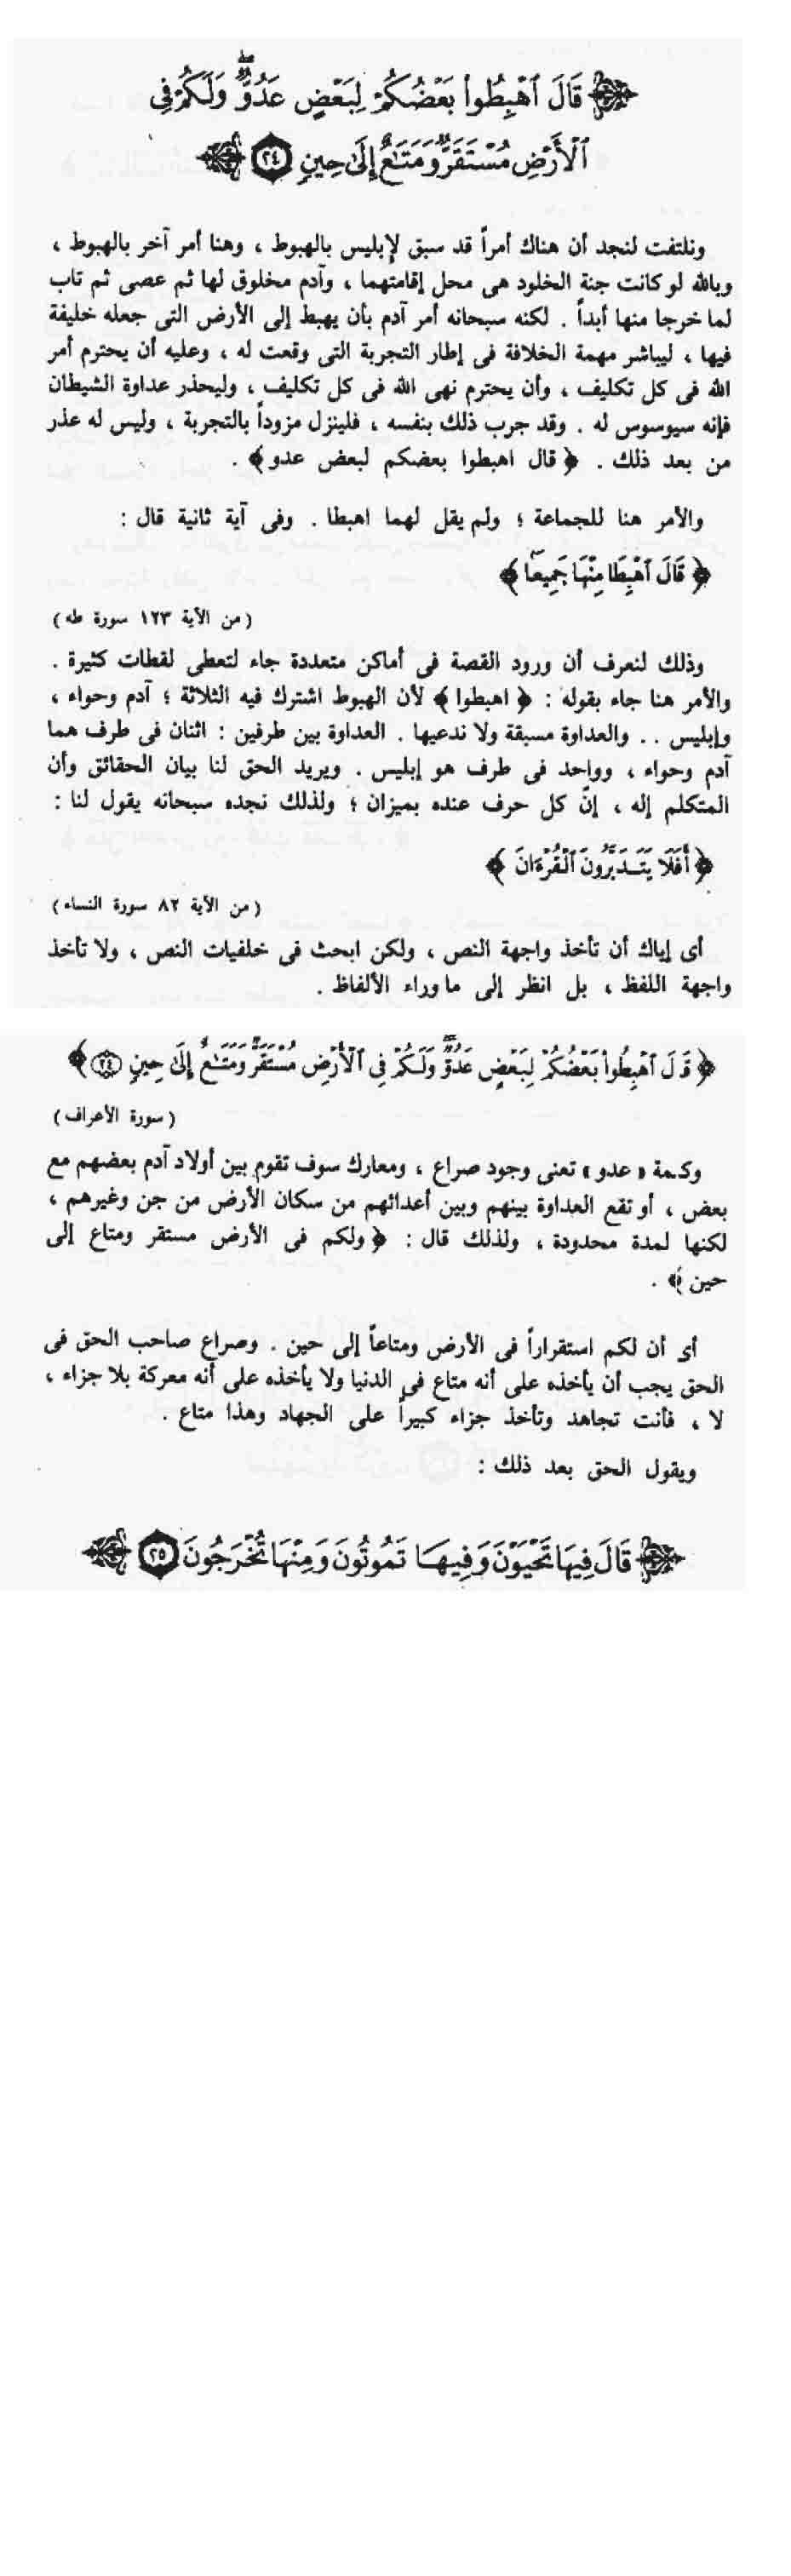 ﴿ قَالَ ٱهْبِطُوا۟ بَعْضُكُمْ لِبَعْضٍ عَدُوٌّ ۖ وَلَكُمْ فِى
ٱلْأَرْضِ مُسْتَقَرٌّ وَمَتَـٰعٌ إِلَىٰ حِينٍ ٢٤ ﴾
ونلتفت لنجد أن هناك أمراً قد سبق لإبليس بالهبوط ، وهنا أمر آخر بالهبوط ،
وبالله لو كانت جنة الخلود هى محل إقامتهما ، وآدم مخلوق لها ثم عصى ثم تاب
لما خرجا منها أبداً . لكنه سبحانه أمر آدم بأن يهبط إلى الأرض التى جعله خليفة
فيها ، ليباشر مهمة الخلافة فى إطار التجربة التى وقعت له ، وعليه أن يحترم أمر
الله فى كل تكليف ، وأن يحترم نهى الله فى كل تكليف ، وليحذر عداوة الشيطان
فإنه سيوسوس له . وقد جرب ذلك بنفسه ، فلينزل مزوداً بالتجربة ، وليس له عذر
من بعد ذلك . ﴿ قال اهبطوا بعضكم لبعض عدو ﴾ .
والأمر هنا للجماعة ؛ ولم يقل لهما اهبطا . وفى آية ثانية قال :
﴿ قَالَ ٱهْبِطَا مِنْهَا جَمِيعًۢا ﴾
( من الآية ١٢٣ سورة طه )
وذلك لنعرف أن ورود القصة فى أماكن متعددة جاء لتعطى لقطات كثيرة .
والأمر هنا جاء بقوله : ﴿ اهبطوا ﴾ لأن الهبوط اشترك فيه الثلاثة ؛ آدم وحواء ،
وإبليس . . والعداوة مسبقة ولا ندعيها . العداوة بين طرفين : اثنان فى طرف هما
آدم وحواء ، وواحد فى طرف هو إبليس . ويريد الحق لنا بيان الحقائق وأن
المتكلم إله ، إنّ كل حرف عنده بميزان ؛ ولذلك نجده سبحانه يقول لنا :
﴿ أَفَلَا يَتَدَبَّرُونَ ٱلْقُرْءَانَ ﴾
( من الآية ٨٢ سورة النساء )
أى إياك أن تأخذ واجهة النص ، ولكن ابحث فى خلفيات النص ، ولا تأخذ
واجهة اللفظ ، بل انظر إلى ما وراء الألفاظ .
﴿ قَالَ ٱهْبِطُوا۟ بَعْضُكُمْ لِبَعْضٍ عَدُوٌّ ۖ وَلَكُمْ فِى ٱلْأَرْضِ مُسْتَقَرٌّ وَمَتَـٰعٌ إِلَىٰ حِينٍ ٢٤ ﴾
( سورة الأعراف )
وكلمة « عدو » تعنى وجود صراع ، ومعارك سوف تقوم بين أولاد آدم بعضهم مع
بعض ، أو تقع العداوة بينهم وبين أعدائهم من سكان الأرض من جن وغيرهم ،
لكنها لمدة محدودة ، ولذلك قال : ﴿ ولكم فى الأرض مستقر ومتاع إلى
حين ﴾ .
أى أن لكم استقراراً فى الأرض ومتاعاً إلى حين . وصراع صاحب الحق فى
الحق يجب أن يأخذه على أنه متاع فى الدنيا ولا يأخذه على أنه معركة بلا جزاء ،
لا ، فأنت تجاهد وتأخذ جزاء كبيراً على الجهاد وهذا متاع .
ويقول الحق بعد ذلك :
﴿ قَالَ فِيهَا تَحْيَوْنَ وَفِيهَا تَمُوتُونَ وَمِنْهَا تُخْرَجُونَ ٢٥ ﴾